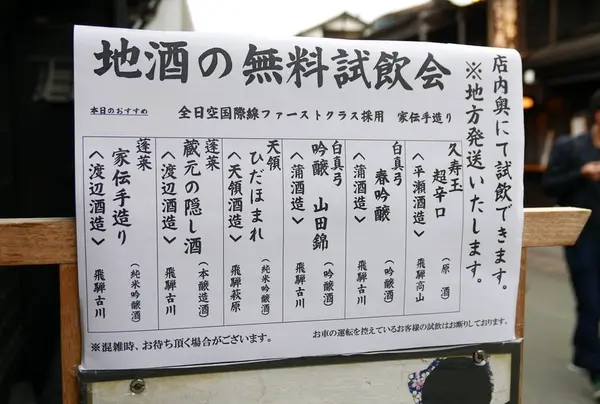 地酒の無料試飲会
店内奥にて試飲できます。
※地方発送いたします。
本日のおすすめ
全日空国際線ファーストクラス採用　家伝手造り
久寿玉
超辛口
（原酒）
＜平瀬酒造＞
飛騨高山
白真弓
春吟醸
（吟醸）
＜蒲酒造＞
飛騨古川
白真弓
吟醸　山田錦
（吟醸）
＜蒲酒造＞
飛騨古川
天領
ひだほまれ
（純米吟醸酒）
＜天領酒造＞
飛騨萩原
蓬莱
蔵元の隠し酒
（本醸造酒）
＜渡辺酒造＞
飛騨古川
蓬莱
家伝手造り
（純米吟醸酒）
＜渡辺酒造＞
飛騨古川
※混雑時、お待ち頂く場合がございます。
お車の運転を控えているお客様の試飲はお断りしております。